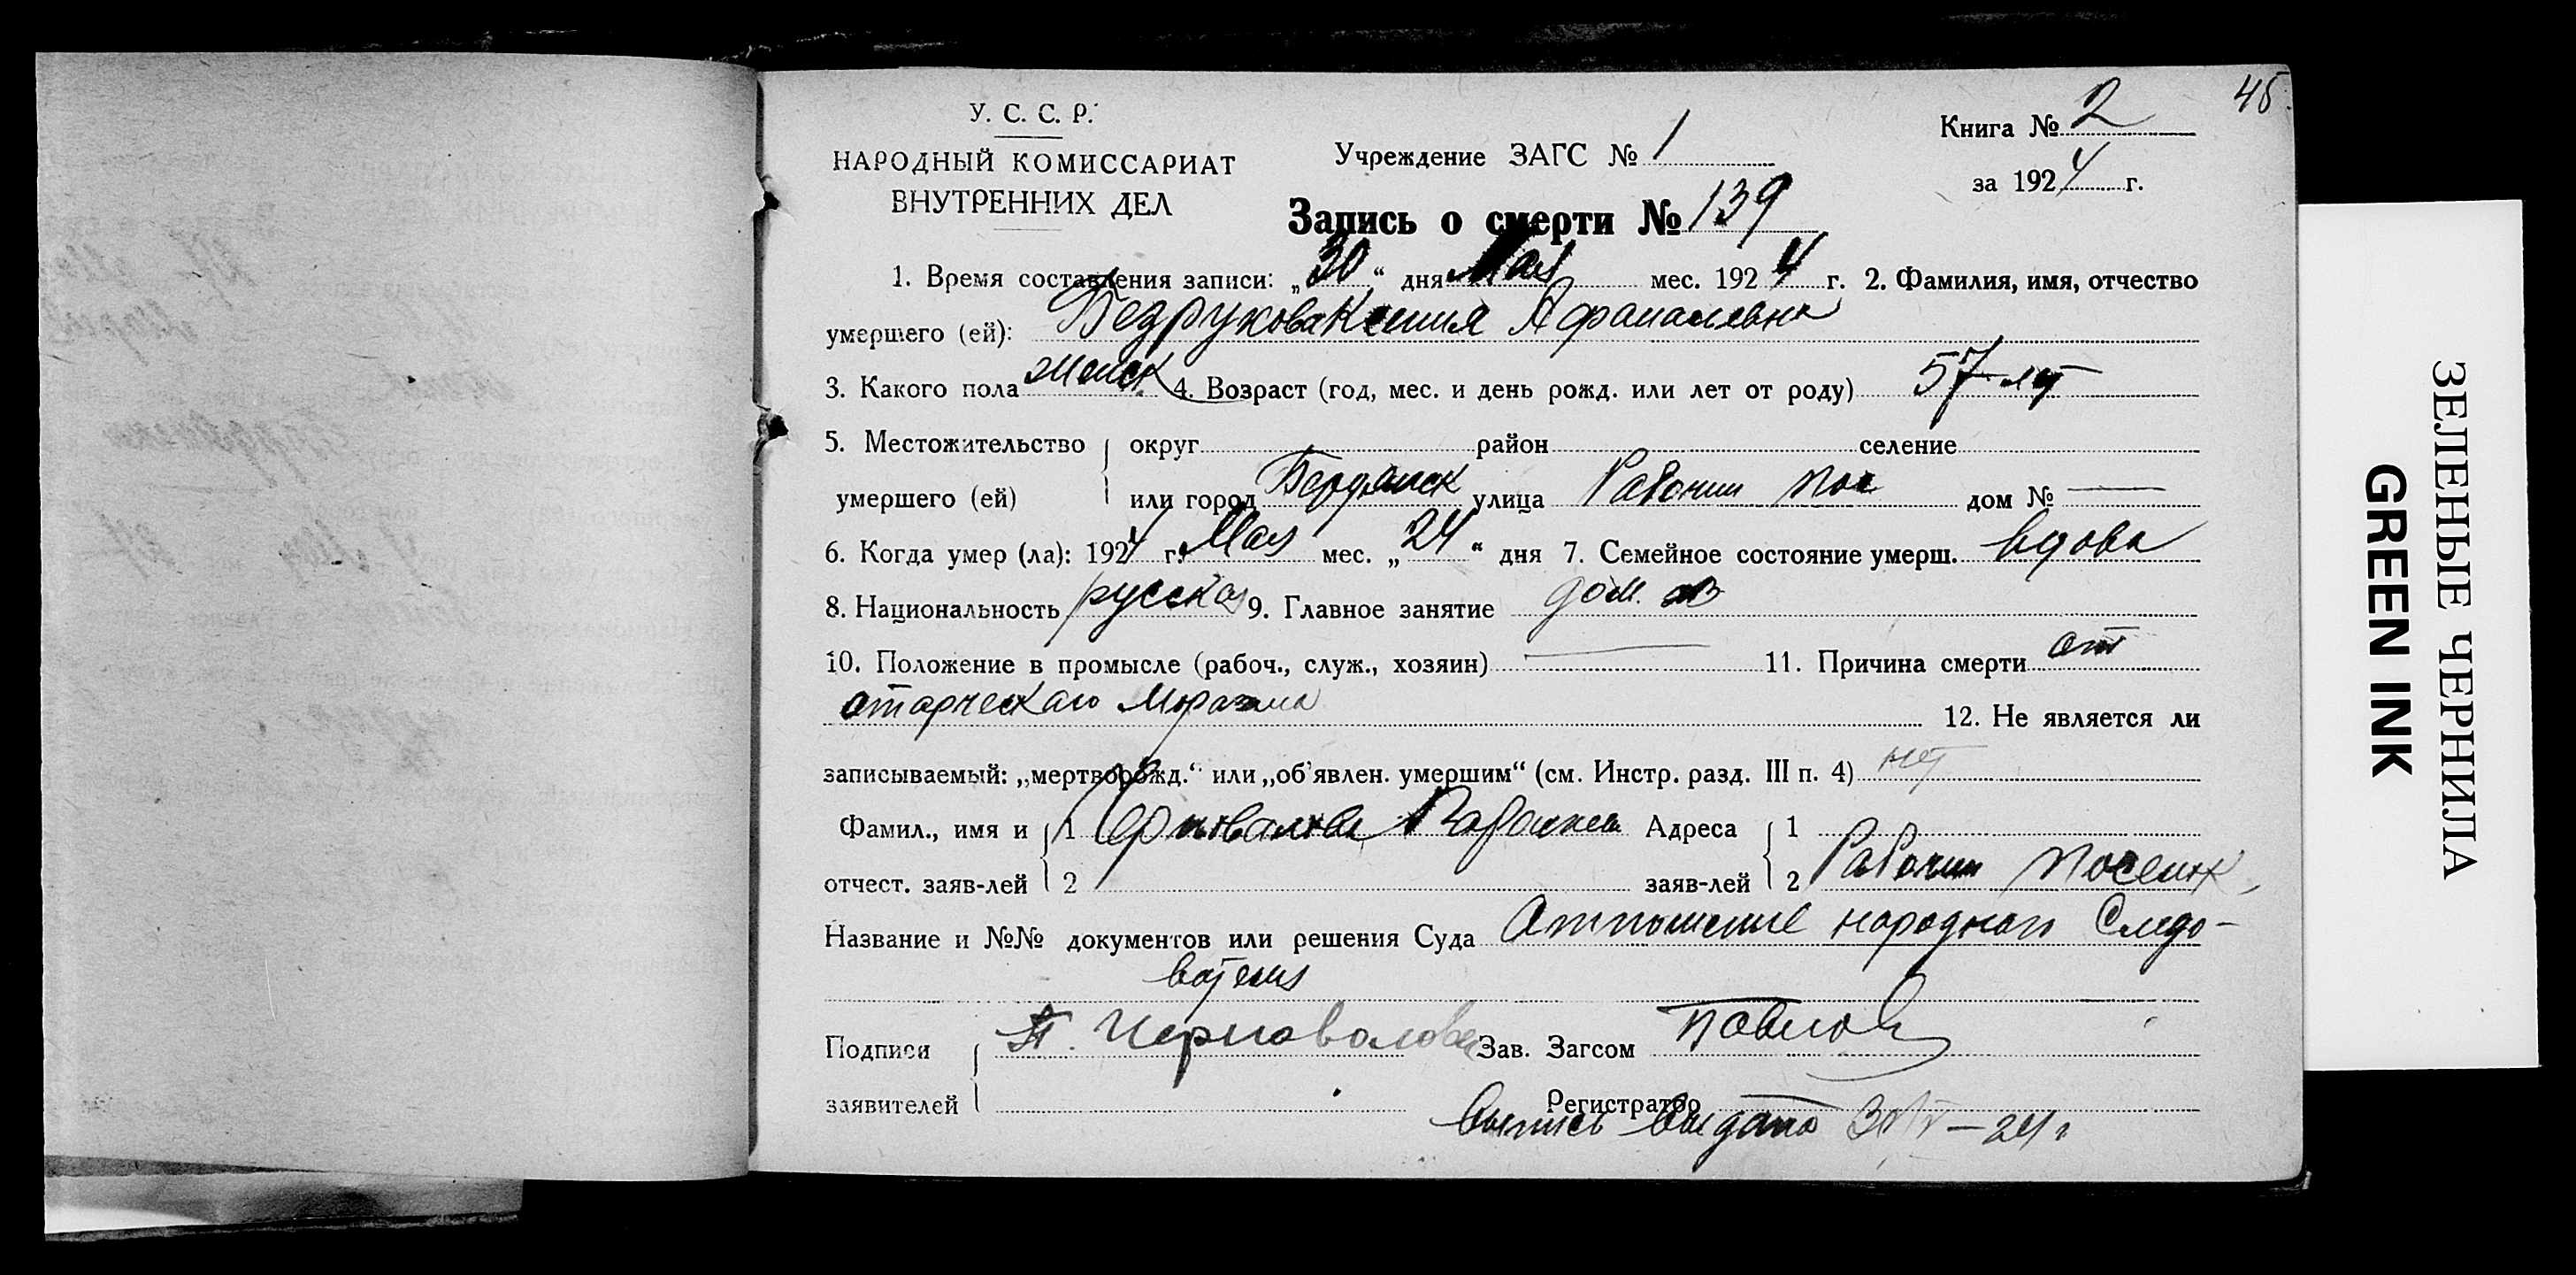 45.
У. С. С. Р.
НАРОДНЫЙ КОМИССАРИАТ
ВНУТРЕННИХ ДЕЛ
Учреждение ЗАГС № 1
Книга № 2
за 1924 г.
Запись о смерти № 139
1. Время составления записи: „30“ дня Мая мес. 1924 г. 2. Фамилия, имя, отчество
умершего (ей): Безрукова Ксения Афанасьевна
3. Какого пола женск 4. Возраст (год, мес. и день рожд. или лет от роду) 57 лет
5. Местожительство округ район селение
умершего (ей) или город Бердянск улица Рабочий пос дом № —
6. Когда умер (ла): 1924 г. Мая мес. „24“ дня 7. Семейное состояние умерш. вдова
8. Национальность русская 9. Главное занятие дом.
10. Положение в промысле (рабоч., служ., хозяин) — 11. Причина смерти от
старческаго Маразма
12. Не является ли
записываемый: „мертворожд.“ или „об’явлен. умершим“ (см. Инстр. разд. III п. 4) нет
Фамил., имя и 1 Адреса 1
отчест. заяв-лей 2 заяв-лей 2 Рабочий Поселк
Название и №№ документов или решения Суда Отношение народнаго Следо-
вателя
Подписи Черновалова Зав. Загсом Павлов
заявителей Регистратор
Выпись выдана 30/V – 24 г
ЗЕЛЕНЫЕ ЧЕРНИЛА
GREEN INK